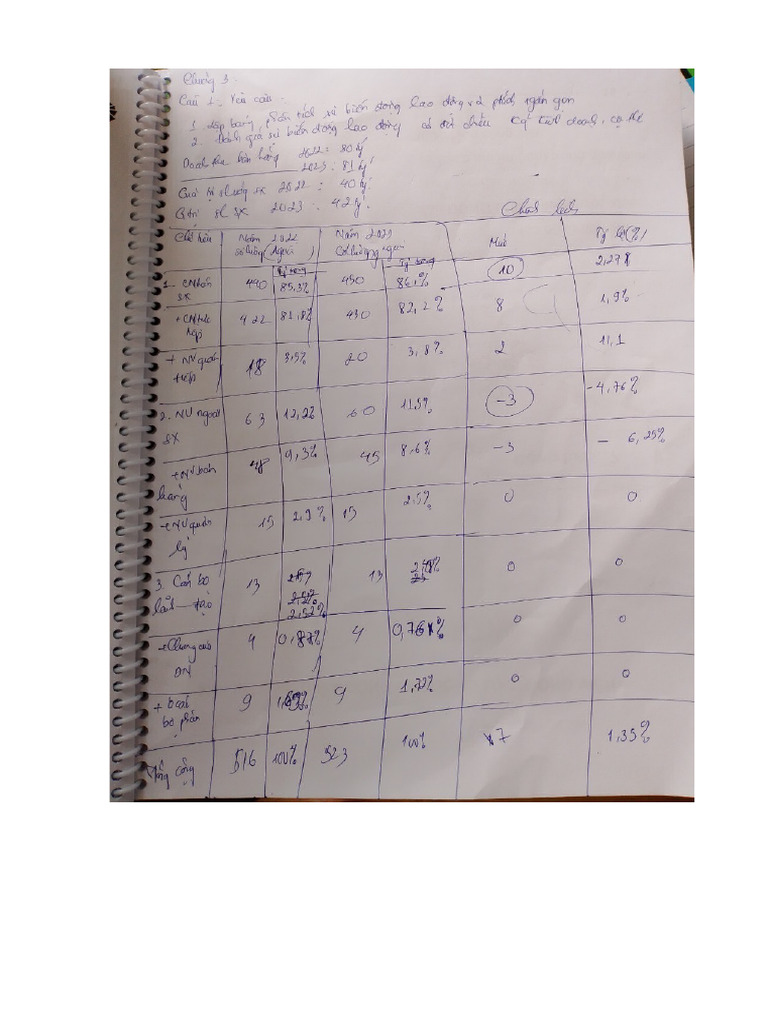 Chương 3.
Câu 1. Yêu cầu:
1. Lập bảng phân tích sự biến động lao động và phân tích ngắn gọn
2. Đánh giá sự biến động lao động có đối chiếu kq kinh doanh, cụ thể
Doanh thu bán hàng 2022: 80 tỷ
2023: 81 tỷ
Giá trị sl sx 2022: 40 tỷ
G.trị sl sx 2023: 42 tỷ.
Chênh lệch
Chỉ tiêu Năm 2022 Năm 2023 Mức Tỷ lệ (%)
số lượng (người) Số lượng người
Tỷ trọng Tỷ trọng
1. CN sx 440 85,3% 450 86,% 10 2,27%
+ CN trực tiếp 422 81,8% 430 82,2% 8 1,9%
+ NV gián tiếp 18 3,5% 20 3,8% 2 11,1
2. NV ngoài sx 63 12,2% 60 11,5% -3 -4,76%
+ NV bán hàng 48 9,3% 45 8,6% -3 - 6,25%
+ NV quản lý 15 2,9% 15 2,5% 0 0
3. Cán bộ lãnh đạo 13 2,52% 13 2,48% 0 0
+ Chung của DN 4 0,87% 4 0,76% 0 0
+ Ở các bộ phận 9 9 1,72% 0 0
Tổng cộng 516 100% 523 100% 7 1,35%